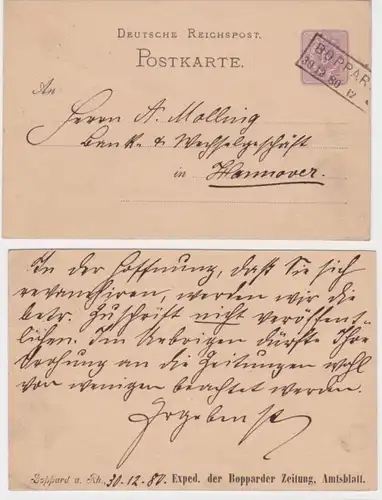 DEUTSCHE REICHSPOST.
POSTKARTE.
BOPPAR
30 12 80 12
An
Herrn A. Molling
Bank- & Wechselgeschäft
in Hannover.
In der Hoffnung, daß Sie sich
revanchiren, werden wir die
betr. Zuschrift nicht veröffent-
lichen. Im Uebrigen dürfte Ihre
Drohung an die Zeitungen wohl
von wenigen beachtet werden.
Ergebenst
Boppard a. Rh., 30-12-80. Exped. der Bopparder Zeitung, Amtsblatt.